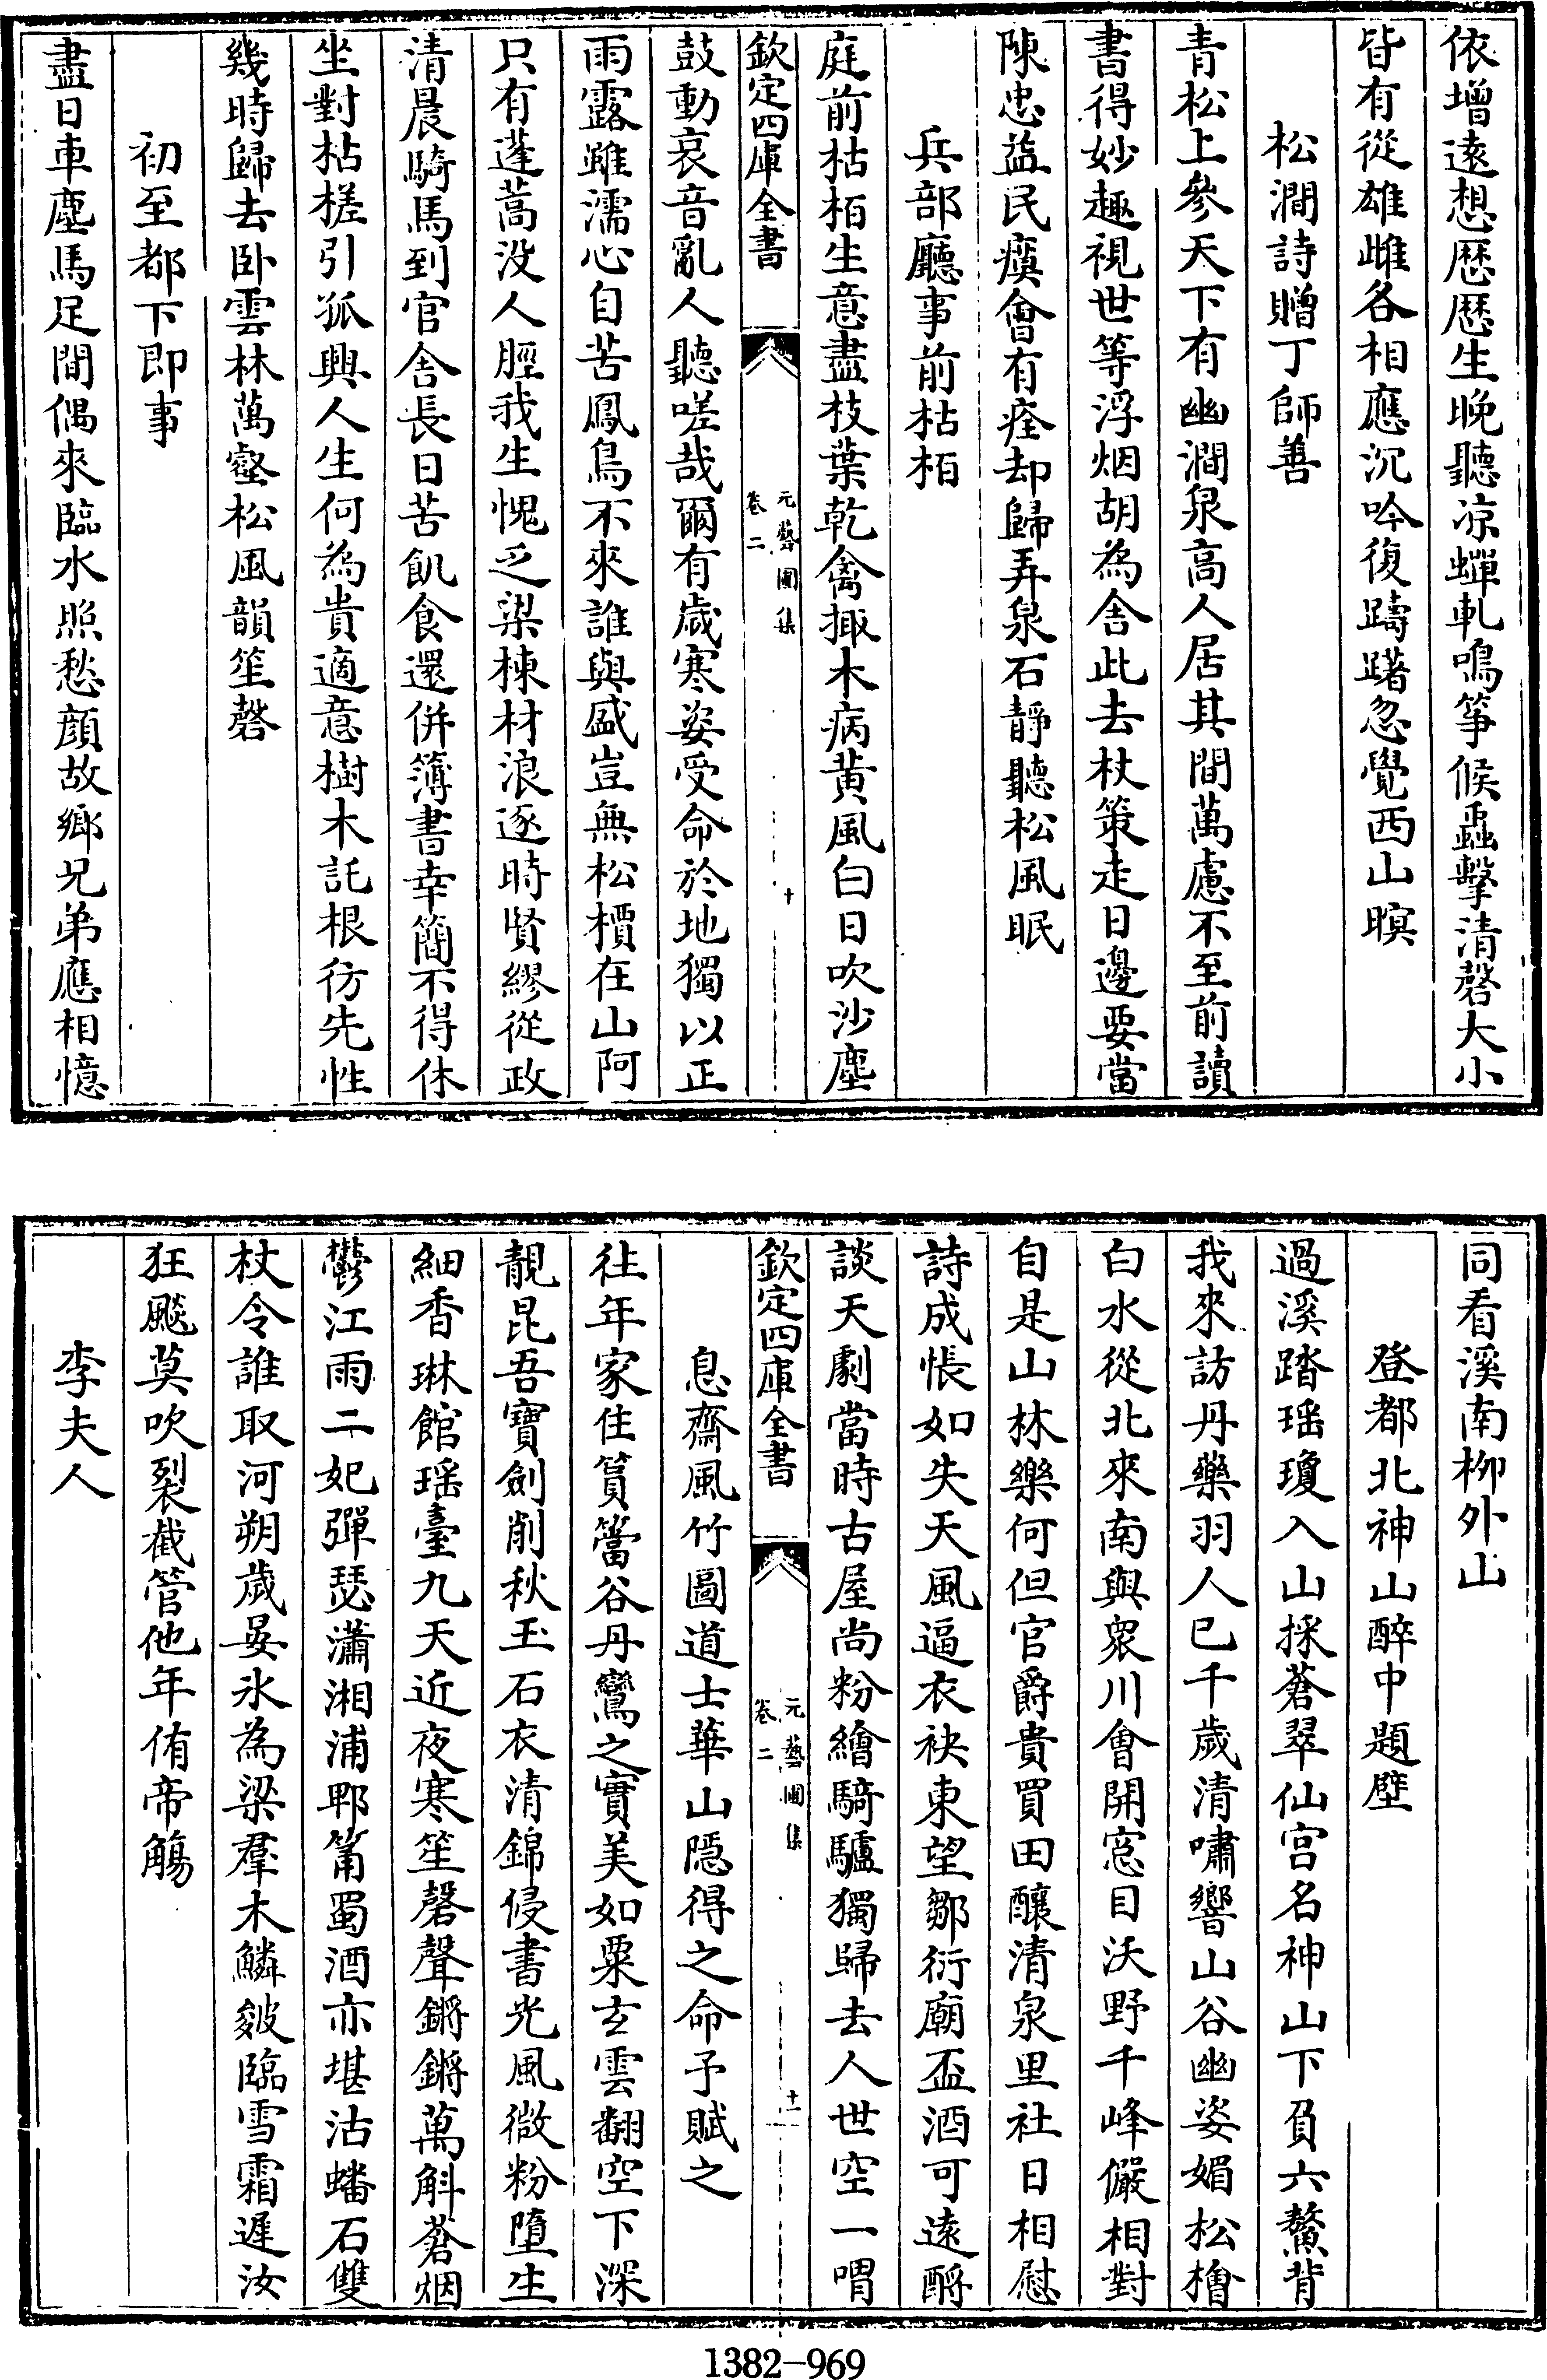 依增遠想歴歴生晚聽凉蟬軋鳴筝候蟲擊清磬大小
皆有從雄雌各相應沉吟復躊躇忽覺西山暝
松澗詩贈丁師善
青松上參天下有幽澗泉高人居其間萬慮不至前讀
書得妙趣視世等浮烟胡為舎此去杖策走日邊要當
陳忠益民瘼會有痊却歸弄泉石靜聽松風眠
兵部廳事前枯栢
庭前枯栢生意盡枝葉乾禽掫木病黄風白日吹沙塵
欽定四庫全書
元藝圃集
卷二
十
鼓動哀音亂人聽嗟哉爾有歳寒姿受命於地獨以正
雨露雖濡心自苦鳳鳥不來誰與盛豈無松檟在山阿
只有蓬蒿没人脛我生愧乏梁棟材浪逐時賢繆從政
清晨騎馬到官舎長日苦飢食還併簿書幸簡不得休
坐對枯槎引孤興人生何為貴適意樹木託根彷先性
幾時歸去卧雲林萬壑松風韻笙磬
初至都下即事
盡日車塵馬足間偶來臨水照愁顔故鄉兄弟應相憶
同看溪南柳外山
登都北神山醉中題壁
過溪踏瑶瓊入山採蒼翠仙宫名神山下負六鰲背
我來訪丹藥羽人已千歲清嘯響山谷幽姿媚松檜
白水從北來南與衆川會開窓目沃野千峰儼相對
自是山林樂何但官爵貴買田釀清泉里社日相慰
詩成悵如失天風逼衣袂東望鄒衍廟盃酒可遠酹
談天劇當時古屋尚粉繪騎驢獨歸去人世空一喟
欽定四庫全書
元藝圃集
卷二
十一
息齋風竹圖道士華山隠得之命予賦之
往年家住篔簹谷丹鸞之實美如粟玄雲翻空下深
靚昆吾寶劍削秋玉石衣清錦侵書光風微粉墮生
細香琳館瑶臺九天近夜寒笙磬聲鏘鏘萬斛蒼烟
鬱江雨二妃彈瑟瀟湘浦郫筩蜀酒亦堪沽蟠石雙
杖令誰取河朔歲晏氷為梁羣木鱗皴臨雪霜遲汝
狂飈莫吹裂截管他年侑帝觴
李夫人
1382-969